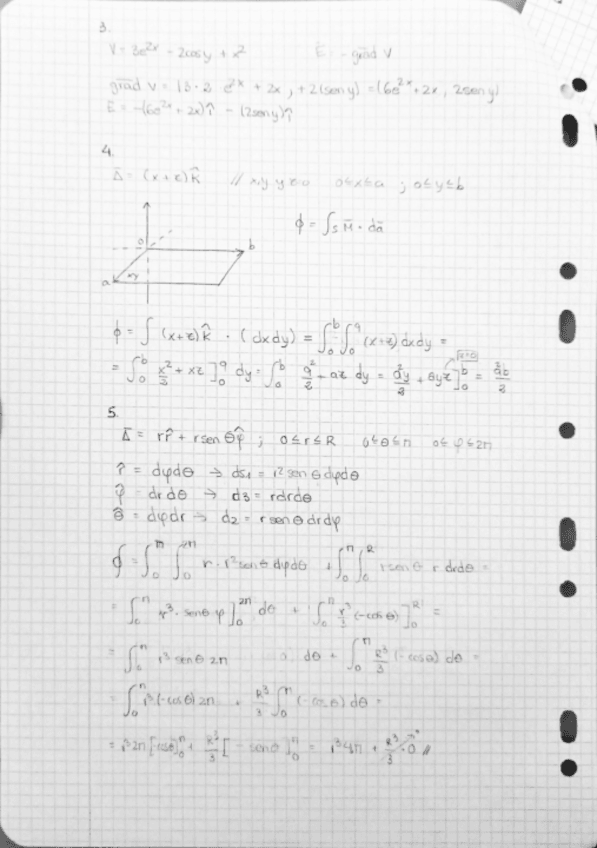 3.
V = 3e^2x - 2cosy + x^2   E = - grad V
grad V = (3·2 e^2x + 2x, +2(seny) = (6e^2x + 2x, 2seny)
E = -(6e^2x + 2x)î - (2seny)
4.
Ā = (x+z)k̂ // xy y z=0 0≤x≤a ; 0≤y≤b
0
b
a
xy
ϕ = ∫s · dā
ϕ = ∫ (x+z)k̂ · (dxdy) = ∫₀^b ∫₀^a (x+z) dxdy =
z=0
= ∫₀^b x²/ + xz ]₀^a dy = ∫₀^b a²/2 + az dy = a²y/2 + ayz ]₀^b = a²b/2
5.
Ā = r r̂ + r sen θ φ̂ ; 0≤r≤R 0≤θ≤π 0≤φ≤2π
r̂ = dφdθ → ds₁ = r² sen θ dφdθ
φ̂ = dr dθ → d3 = r dr dθ
θ̂ = dφdr → d2 = r sen θ dr dφ
ϕ = ∫₀^π ∫₀^2π r · r² sen θ dφdθ + ∫₀^π ∫₀^R r sen θ r drdθ =
= ∫₀^π r³ · sen θ φ ]₀^2π dθ + ∫₀^π r³/3 (-cos θ) ]₀^R =
= ∫₀^π r³ sen θ 2π dθ + ∫₀^π R³/3 (-cos θ) dθ =
= ∫₀^π r³ (-cos θ) 2π + R³/3 ∫₀^π (-cos θ) dθ =
= r³2π [-cosθ]₀^π + R³/3 [ - senθ ]₀^π = r³4π + R³/3 · 0 //